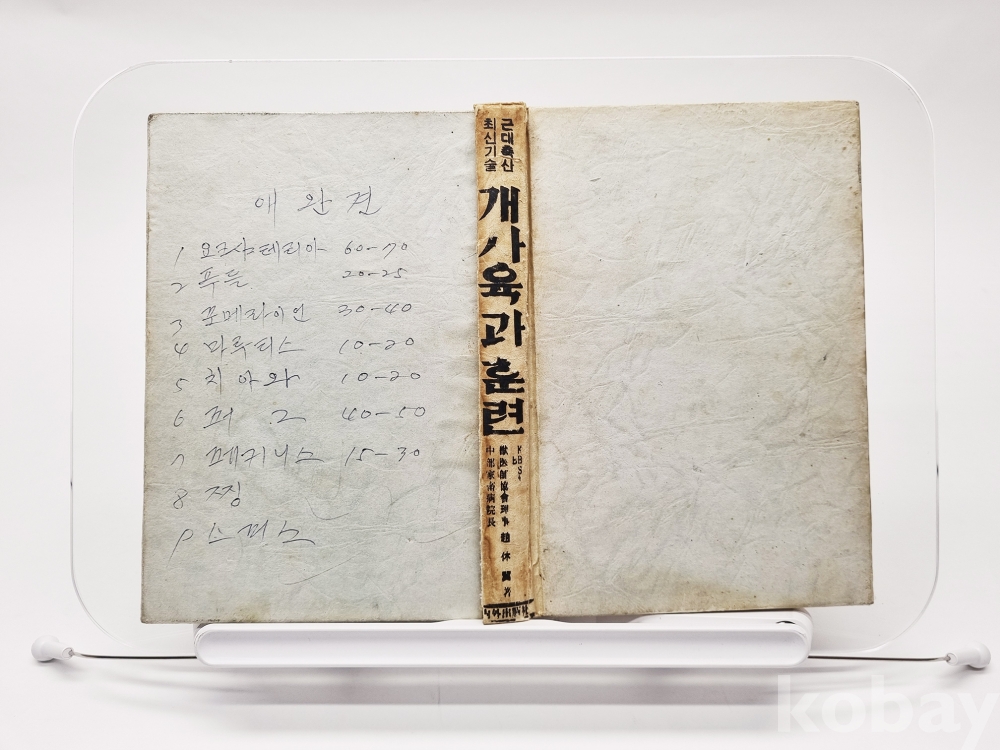 애완견
1 요크샤테리아 60-70
2 푸들 20-25
3 포메라이언 30-40
4 마르티스 10-20
5 치아와 10-20
6 퍼그 40-50
7 페키니스 15-30
8 찡
9 스피스
근대축산
최신기술
개사육과 훈련
KBS
獸医師協會理事 趙休翼 著
中部家畜病院長
kobay